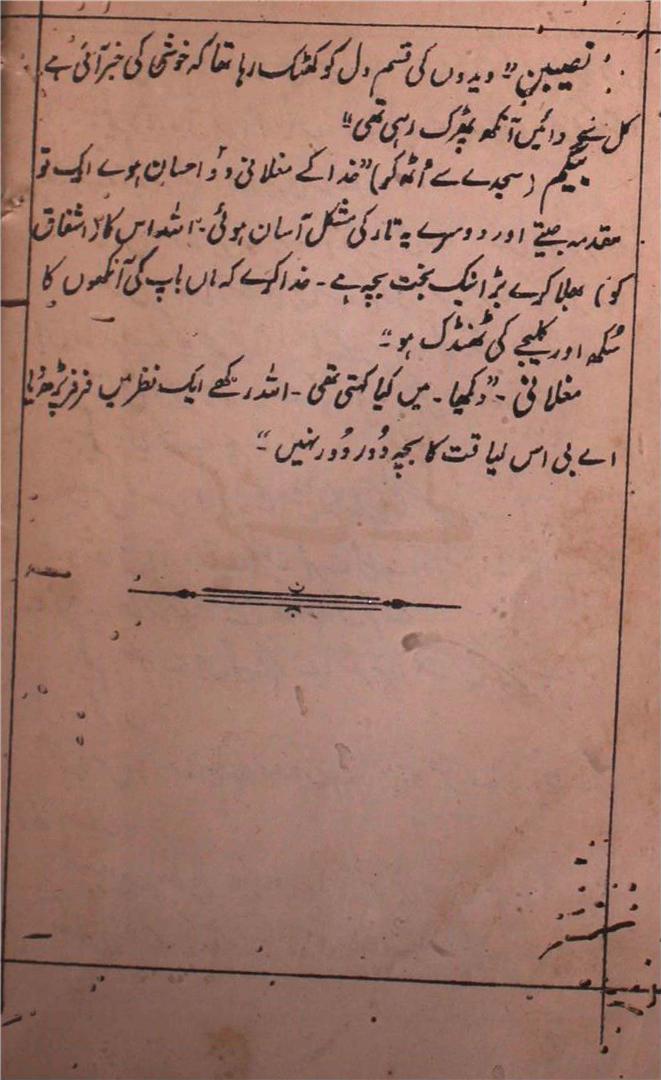 نصیبن۔ "دیدوں کی قسم دل کو کھٹک رہا تھا کہ خوشی کی خبر آئی ہے
کل سے دائیں آنکھ پھڑک رہی تھی"
بیگم (سجدے سے اُٹھ کر) "خدا کے مغلانی دو احسان ہوے ایک تو
مقدمہ جیتے اور دوسرے یہ تار کی مشکل آسان ہوئی۔ اللہ اس کا (اشفاق
کو) بھلا کرے بڑا نیک بخت بچہ ہے۔ خدا کرے کہ ماں باپ کی آنکھوں کا
سُکھ اور کلیجے کی ٹھنڈک ہو"
مغلانی۔ "دیکھا۔ میں کیا کہتی تھی۔ اللہ رکھے ایک نظر میں فرفر پڑھ دیا
اے بی اس لیاقت کا بچہ دُور دُور نہیں"